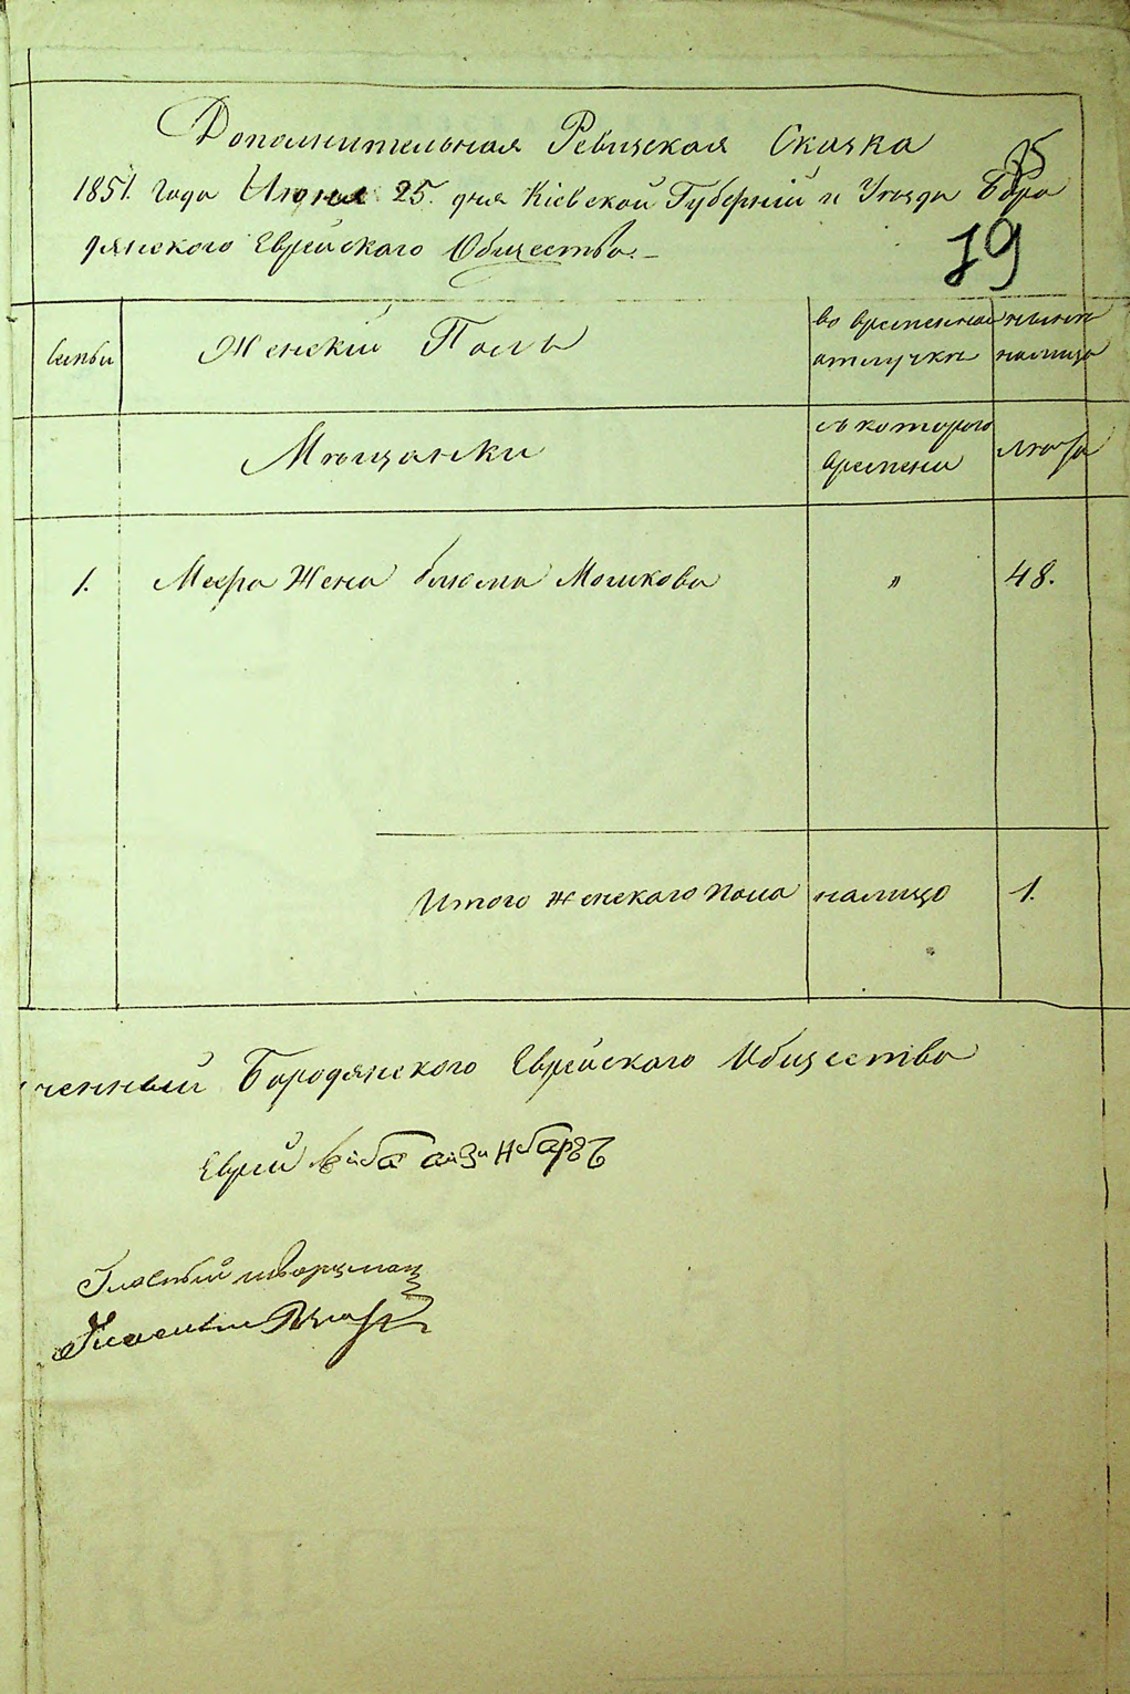 Дополнительная Ревизская Сказка
1851. года Июня 25. дня Кіевской Губерніи и Уезда Боро
дянского Еврейского Общества.
79
семьи
Женскій Полъ
во временной
отлучке
ныне
налицо
Мещанки
съ которого
времени
лета
1. Жена Мошкова " 48.
Итого женского пола налицо 1.
ченный Бородянского Еврейского Общества
Еврей
Гласный